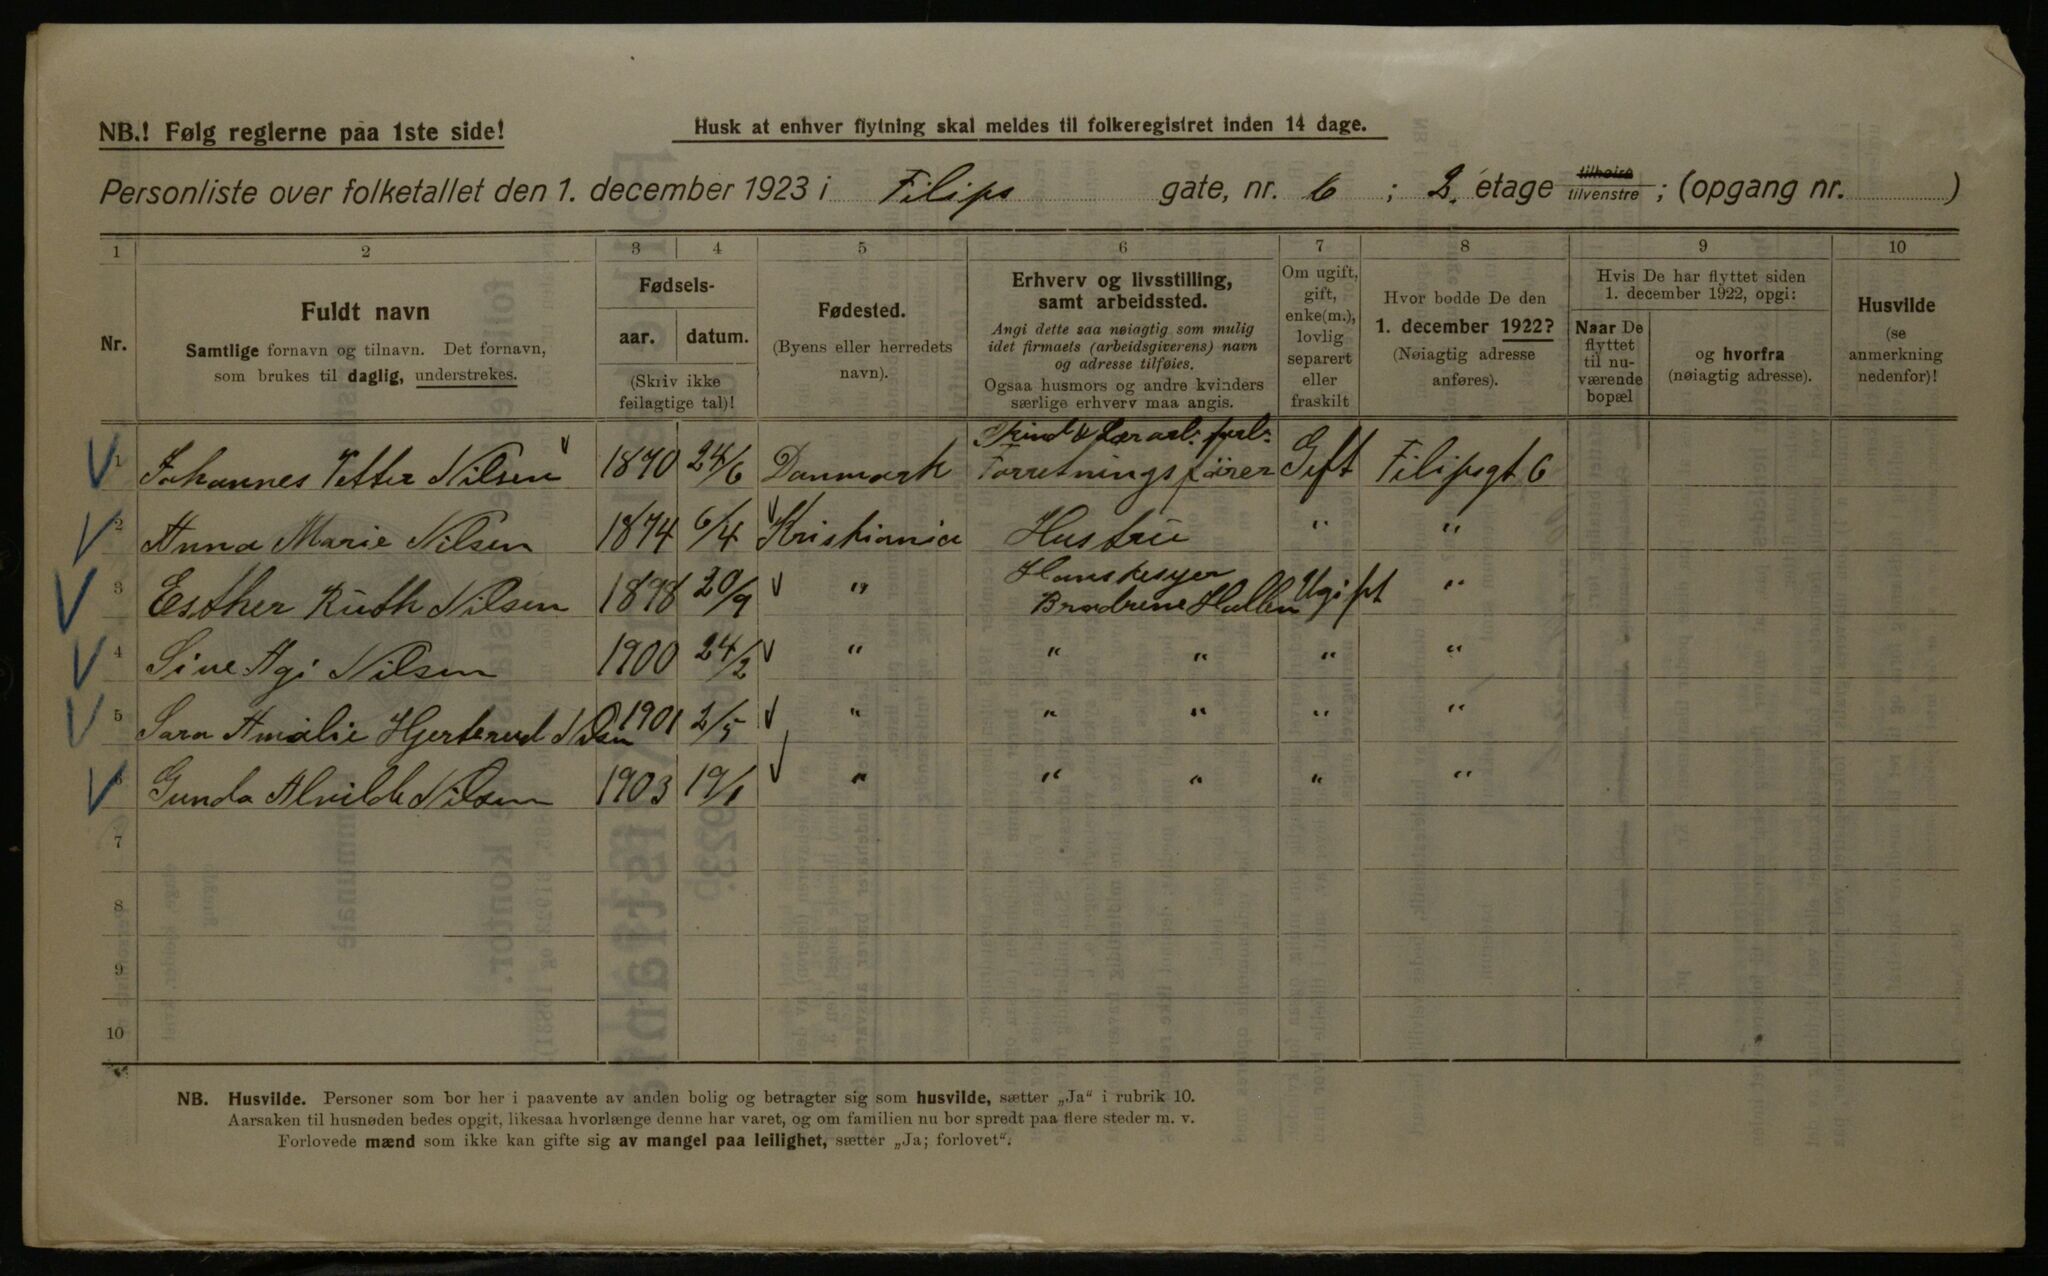 NB.! Følg reglerne paa 1ste side!
Husk at enhver flytning skal meldes til folkeregistret inden 14 dage.
Personliste over folketallet den 1. december 1923 i Filips gate, nr. 6 ; 2. etage tilhøire tilvenstre ; (opgang nr. )
1 2 3 4 5 6 7 8 9 10
Nr.
Fuldt navn
Samtlige fornavn og tilnavn. Det fornavn,
som brukes til daglig, understrekes.
Fødsels-
aar. datum.
(Skriv ikke
feilagtige tal)!
Fødested.
(Byens eller herredets
navn).
Erhverv og livsstilling,
samt arbeidssted.
Angi dette saa nøiagtig som mulig
idet firmaets (arbeidsgiverens) navn
og adresse tilføies.
Ogsaa husmors og andre kvinders
særlige erhverv maa angis.
Om ugift,
gift,
enke(m.),
lovlig
separert
eller
fraskilt
Hvor bodde De den
1. december 1922?
(Nøiagtig adresse
anføres).
Hvis De har flyttet siden
1. december 1922, opgi:
Naar De
flyttet
til nu-
værende
bopæl
og hvorfra
(nøiagtig adresse).
Husvilde
(se
anmerkning
nedenfor)!
Skind & Lærarb. forb.
1 Johannes Petter Nilsen 1870 24/6 Danmark Forretningsfører Gift Filipsgt 6
2 Anna Marie Nilsen 1874 6/4 Kristiania Hustru " "
Hanskesyer
3 Esther Ruth Nilsen 1898 20/9 " Brødrene Hallen Ugift "
4 Sine Agi Nilsen 1900 24/2 " " " " "
5 Sara Amalie Hjerterud Nilsen 1901 2/5 " " " " "
6 Gunda Alvilde Nilsen 1903 19/1 " " " " "
7
8
9
10
NB. Husvilde. Personer som bor her i paavente av anden bolig og betragter sig som husvilde, sætter „Ja" i rubrik 10.
Aarsaken til husnøden bedes opgit, likesaa hvorlænge denne har varet, og om familien nu bor spredt paa flere steder m. v.
Forlovede mænd som ikke kan gifte sig av mangel paa leilighet, sætter „Ja; forlovet".